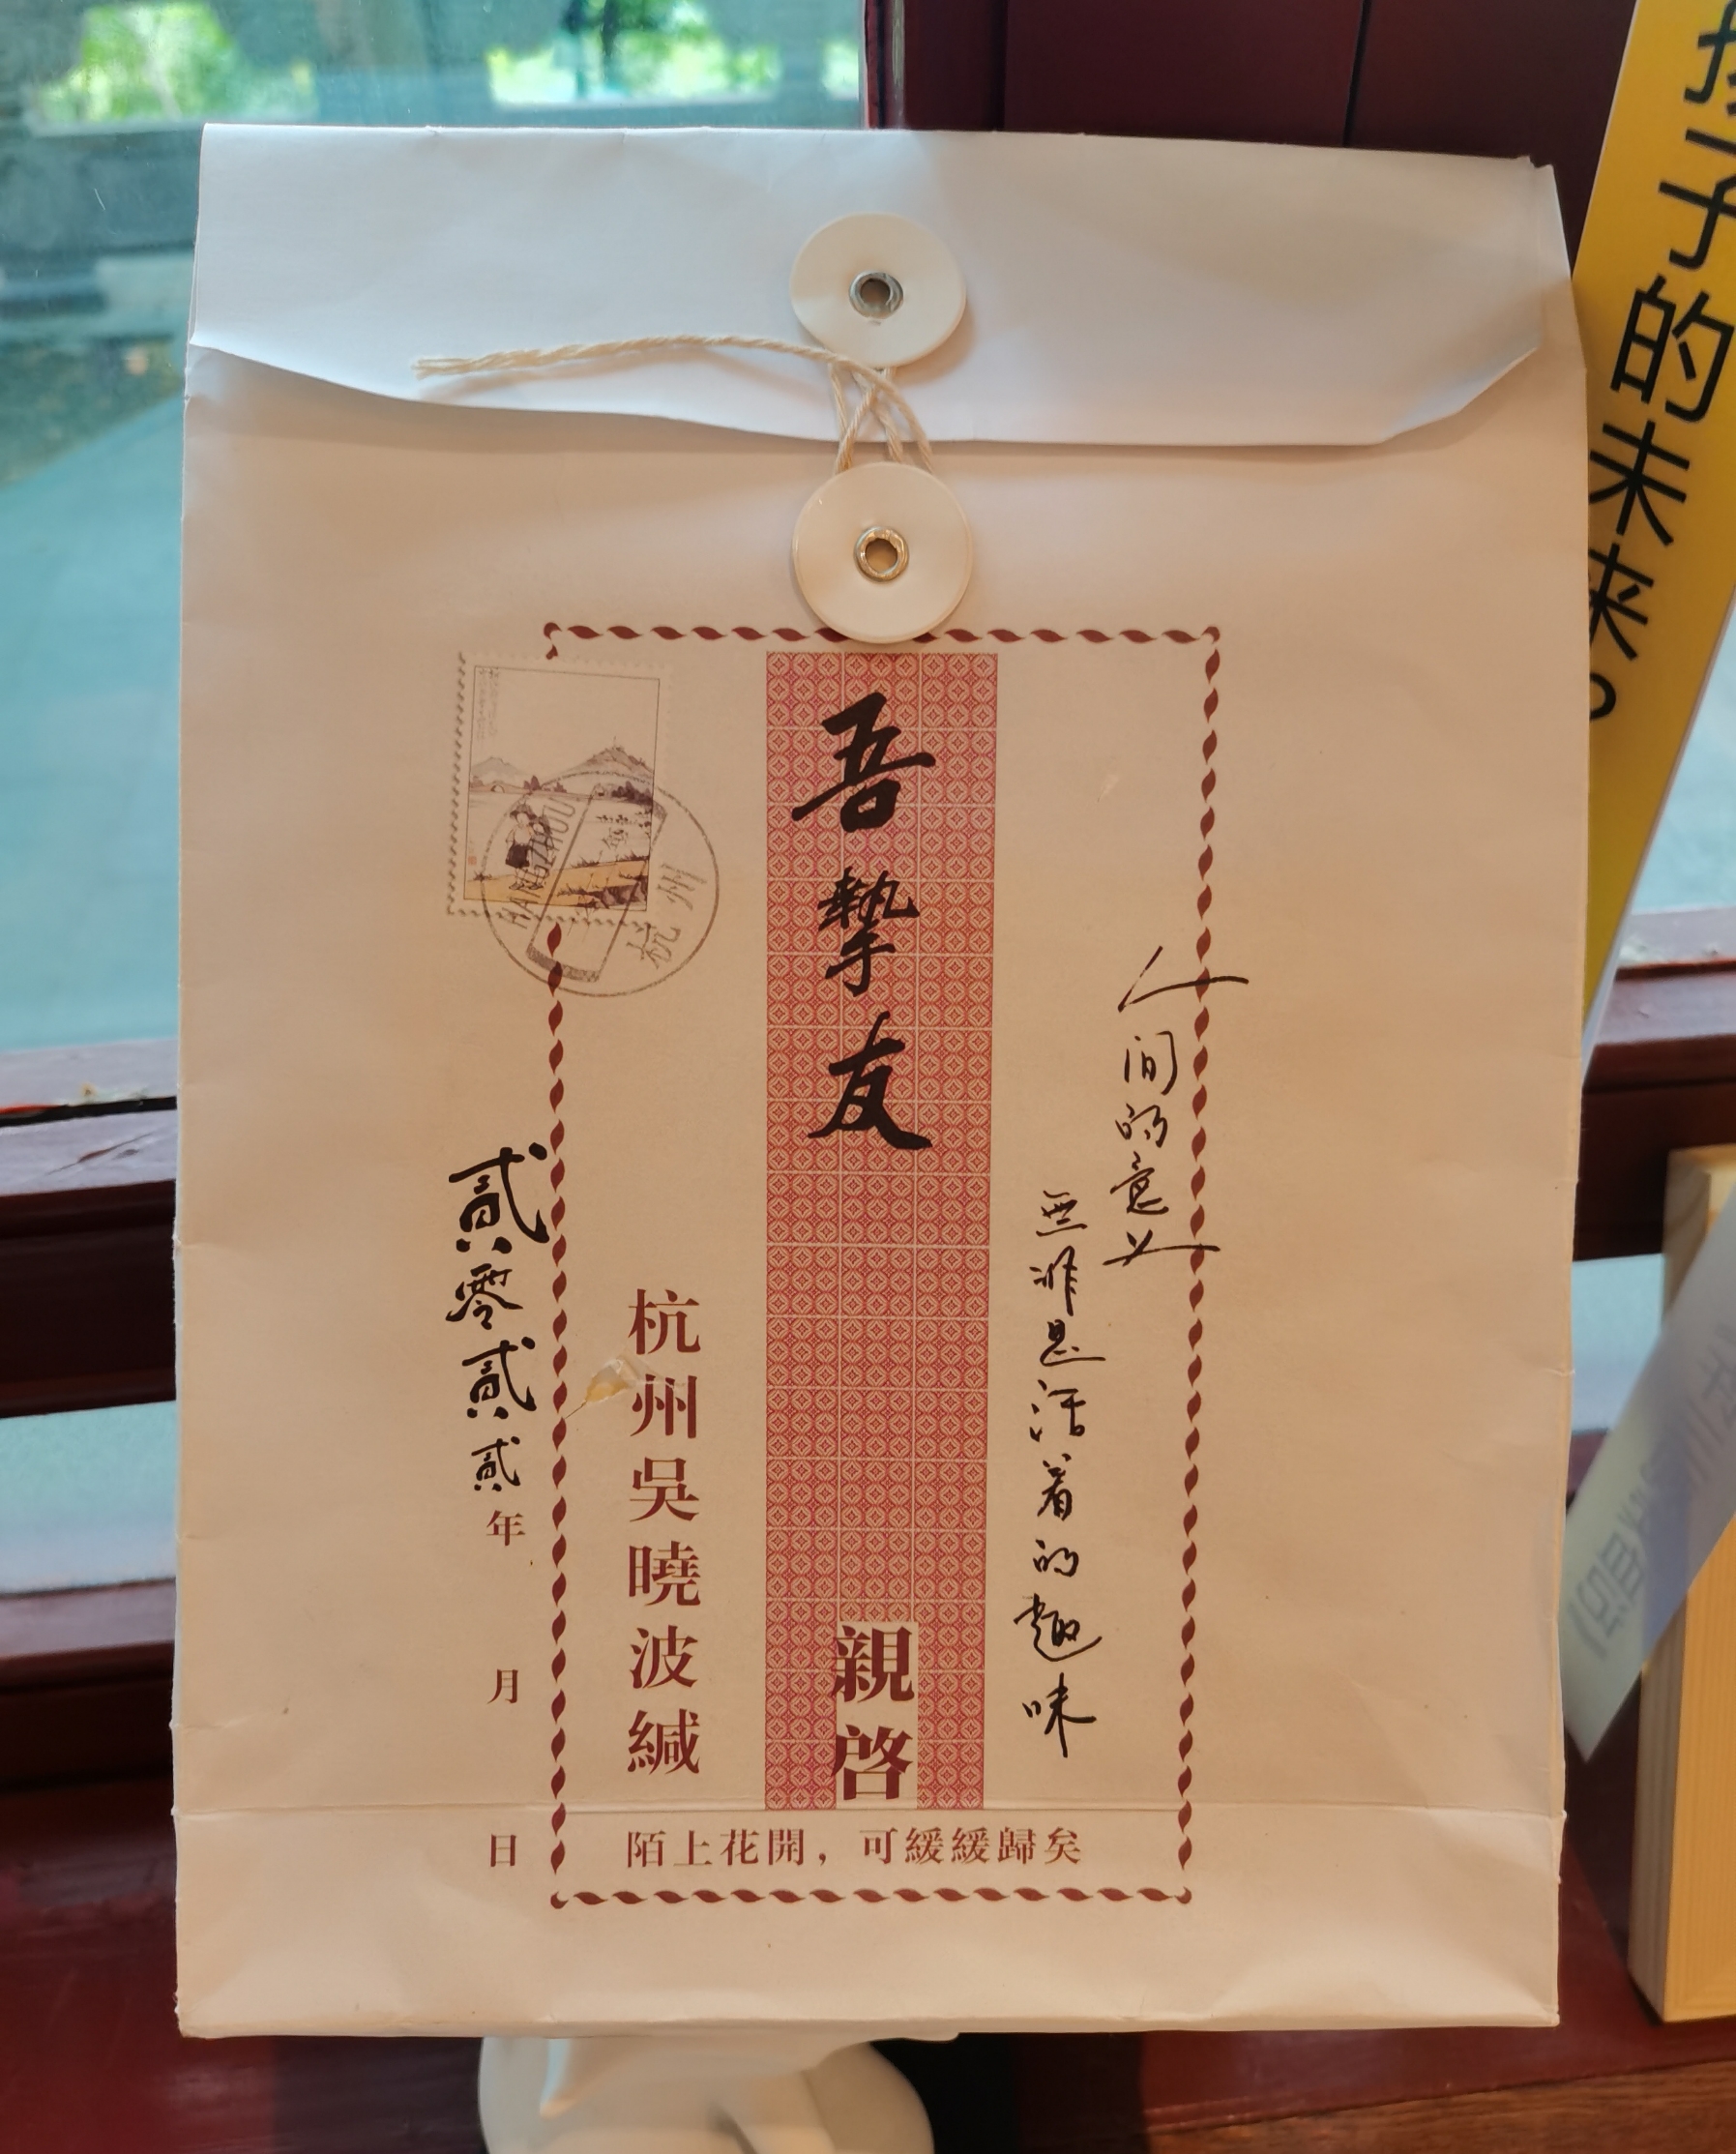 孩子的未来。
人间的意义
無非是活着的趣味
吾挚友
親啓
杭州吳曉波緘
HANGZHOU
杭州
貳零貳貳年
月
日
陌上花開，可緩緩歸矣